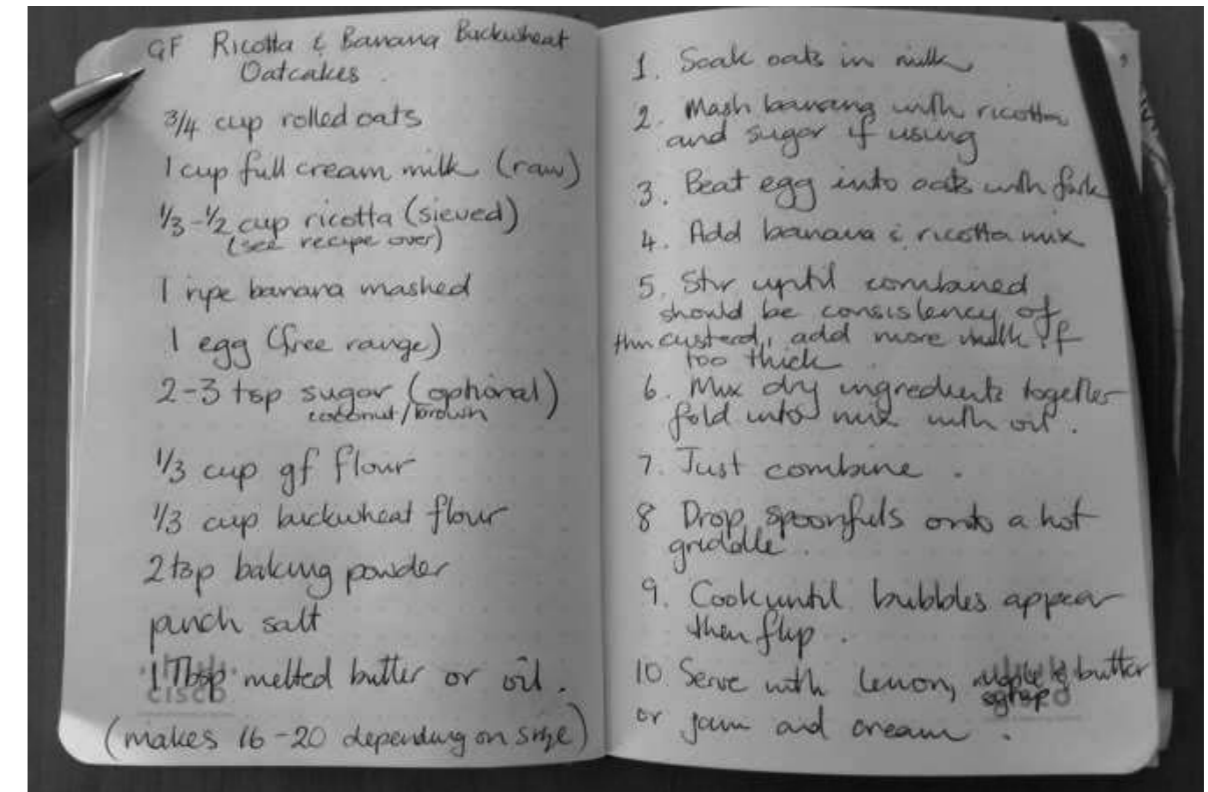 GF Ricotta & Banana Buckwheat
Oatcakes.
3/4 cup rolled oats
1 cup full cream milk (raw)
1/3-1/2 cup ricotta (sieved)
(see recipe over)
1 ripe banana mashed
1 egg (free range)
2-3 tsp sugar (optional)
coconut/brown
1/3 cup gf flour
1/3 cup buckwheat flour
2 tsp baking powder
pinch salt
1 Tbsp melted butter or oil.
CISCO
(makes 16-20 depending on size)
1. Soak oats in milk
2. Mash banana with ricotta
and sugar if using
3. Beat egg into oats with fork
4. Add banana & ricotta mix
5. Stir until combined
should be consistency of
thin custard, add more milk if
too thick.
6. Mix dry ingredients together
fold into mix with oil.
7. Just combine.
8 Drop spoonfuls onto a hot
griddle.
9. Cook until bubbles appear
then flip.
10. Serve with lemon, maple & butter
syrup
or jam and cream.